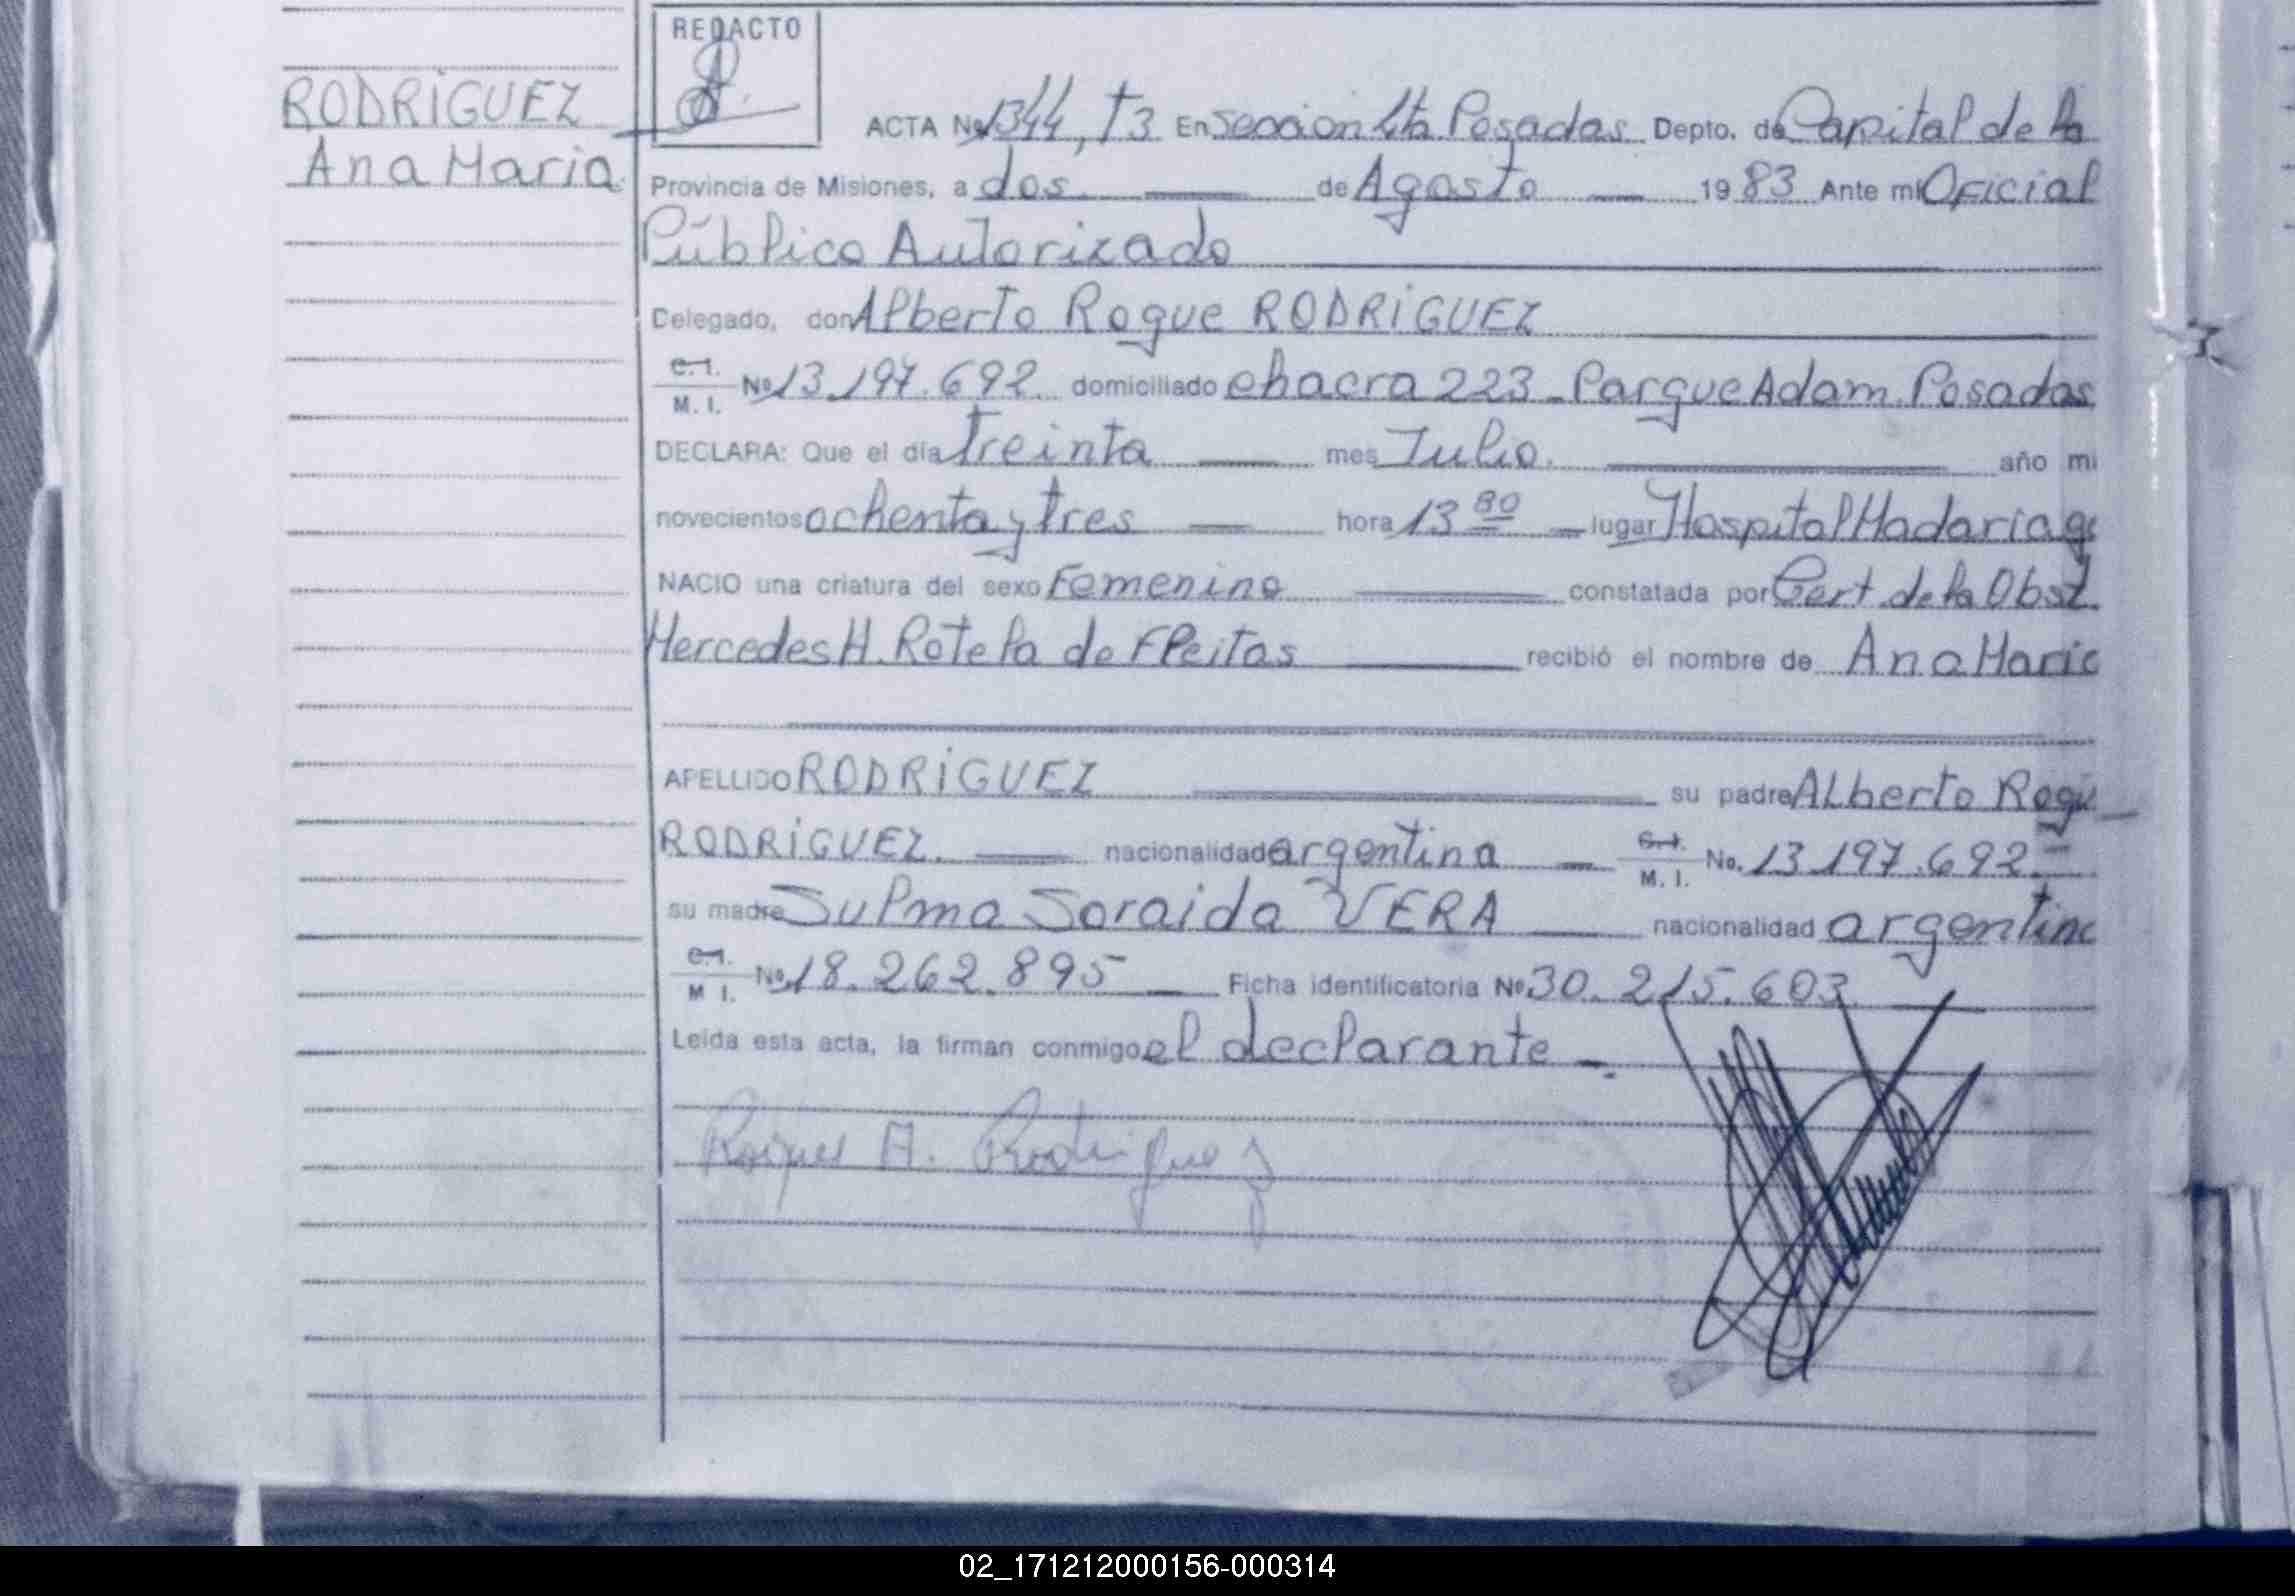 REDACTO
RODRÍGUEZ
Ana Maria
ACTA Nº 1344, T3 En Seccion 4ta Posadas Depto. de Capital de la
Provincia de Misiones, a dos de Agosto 1983 Ante mi Oficial
Público Autorizado
Delegado, don Alberto Roque RODRÍGUEZ
C.I. M.I. Nº 13.197.692 domiciliado chacra 223 - Parque Adam. Posadas
DECLARA: Que el día treinta mes Julio año mi
novecientos ochenta y tres hora 13 30 lugar Hospital Madariag
NACIO una criatura del sexo Femenino constatada por Cert. de la Obst.
Mercedes H. Rotela de Fleitas recibió el nombre de Ana Maria
APELLIDO RODRÍGUEZ su padre Alberto Roqu
RODRÍGUEZ. nacionalidad argentina C.I. M.I. No. 13.197.692
su madre Sulma Soraida VERA nacionalidad argentina
C.I. M I. Nº 18.262.895 Ficha identificatoria Nº 30.215.603
Leída esta acta, la firman conmigo el declarante
Roque A. Rodriguez
02_171212000156-000314